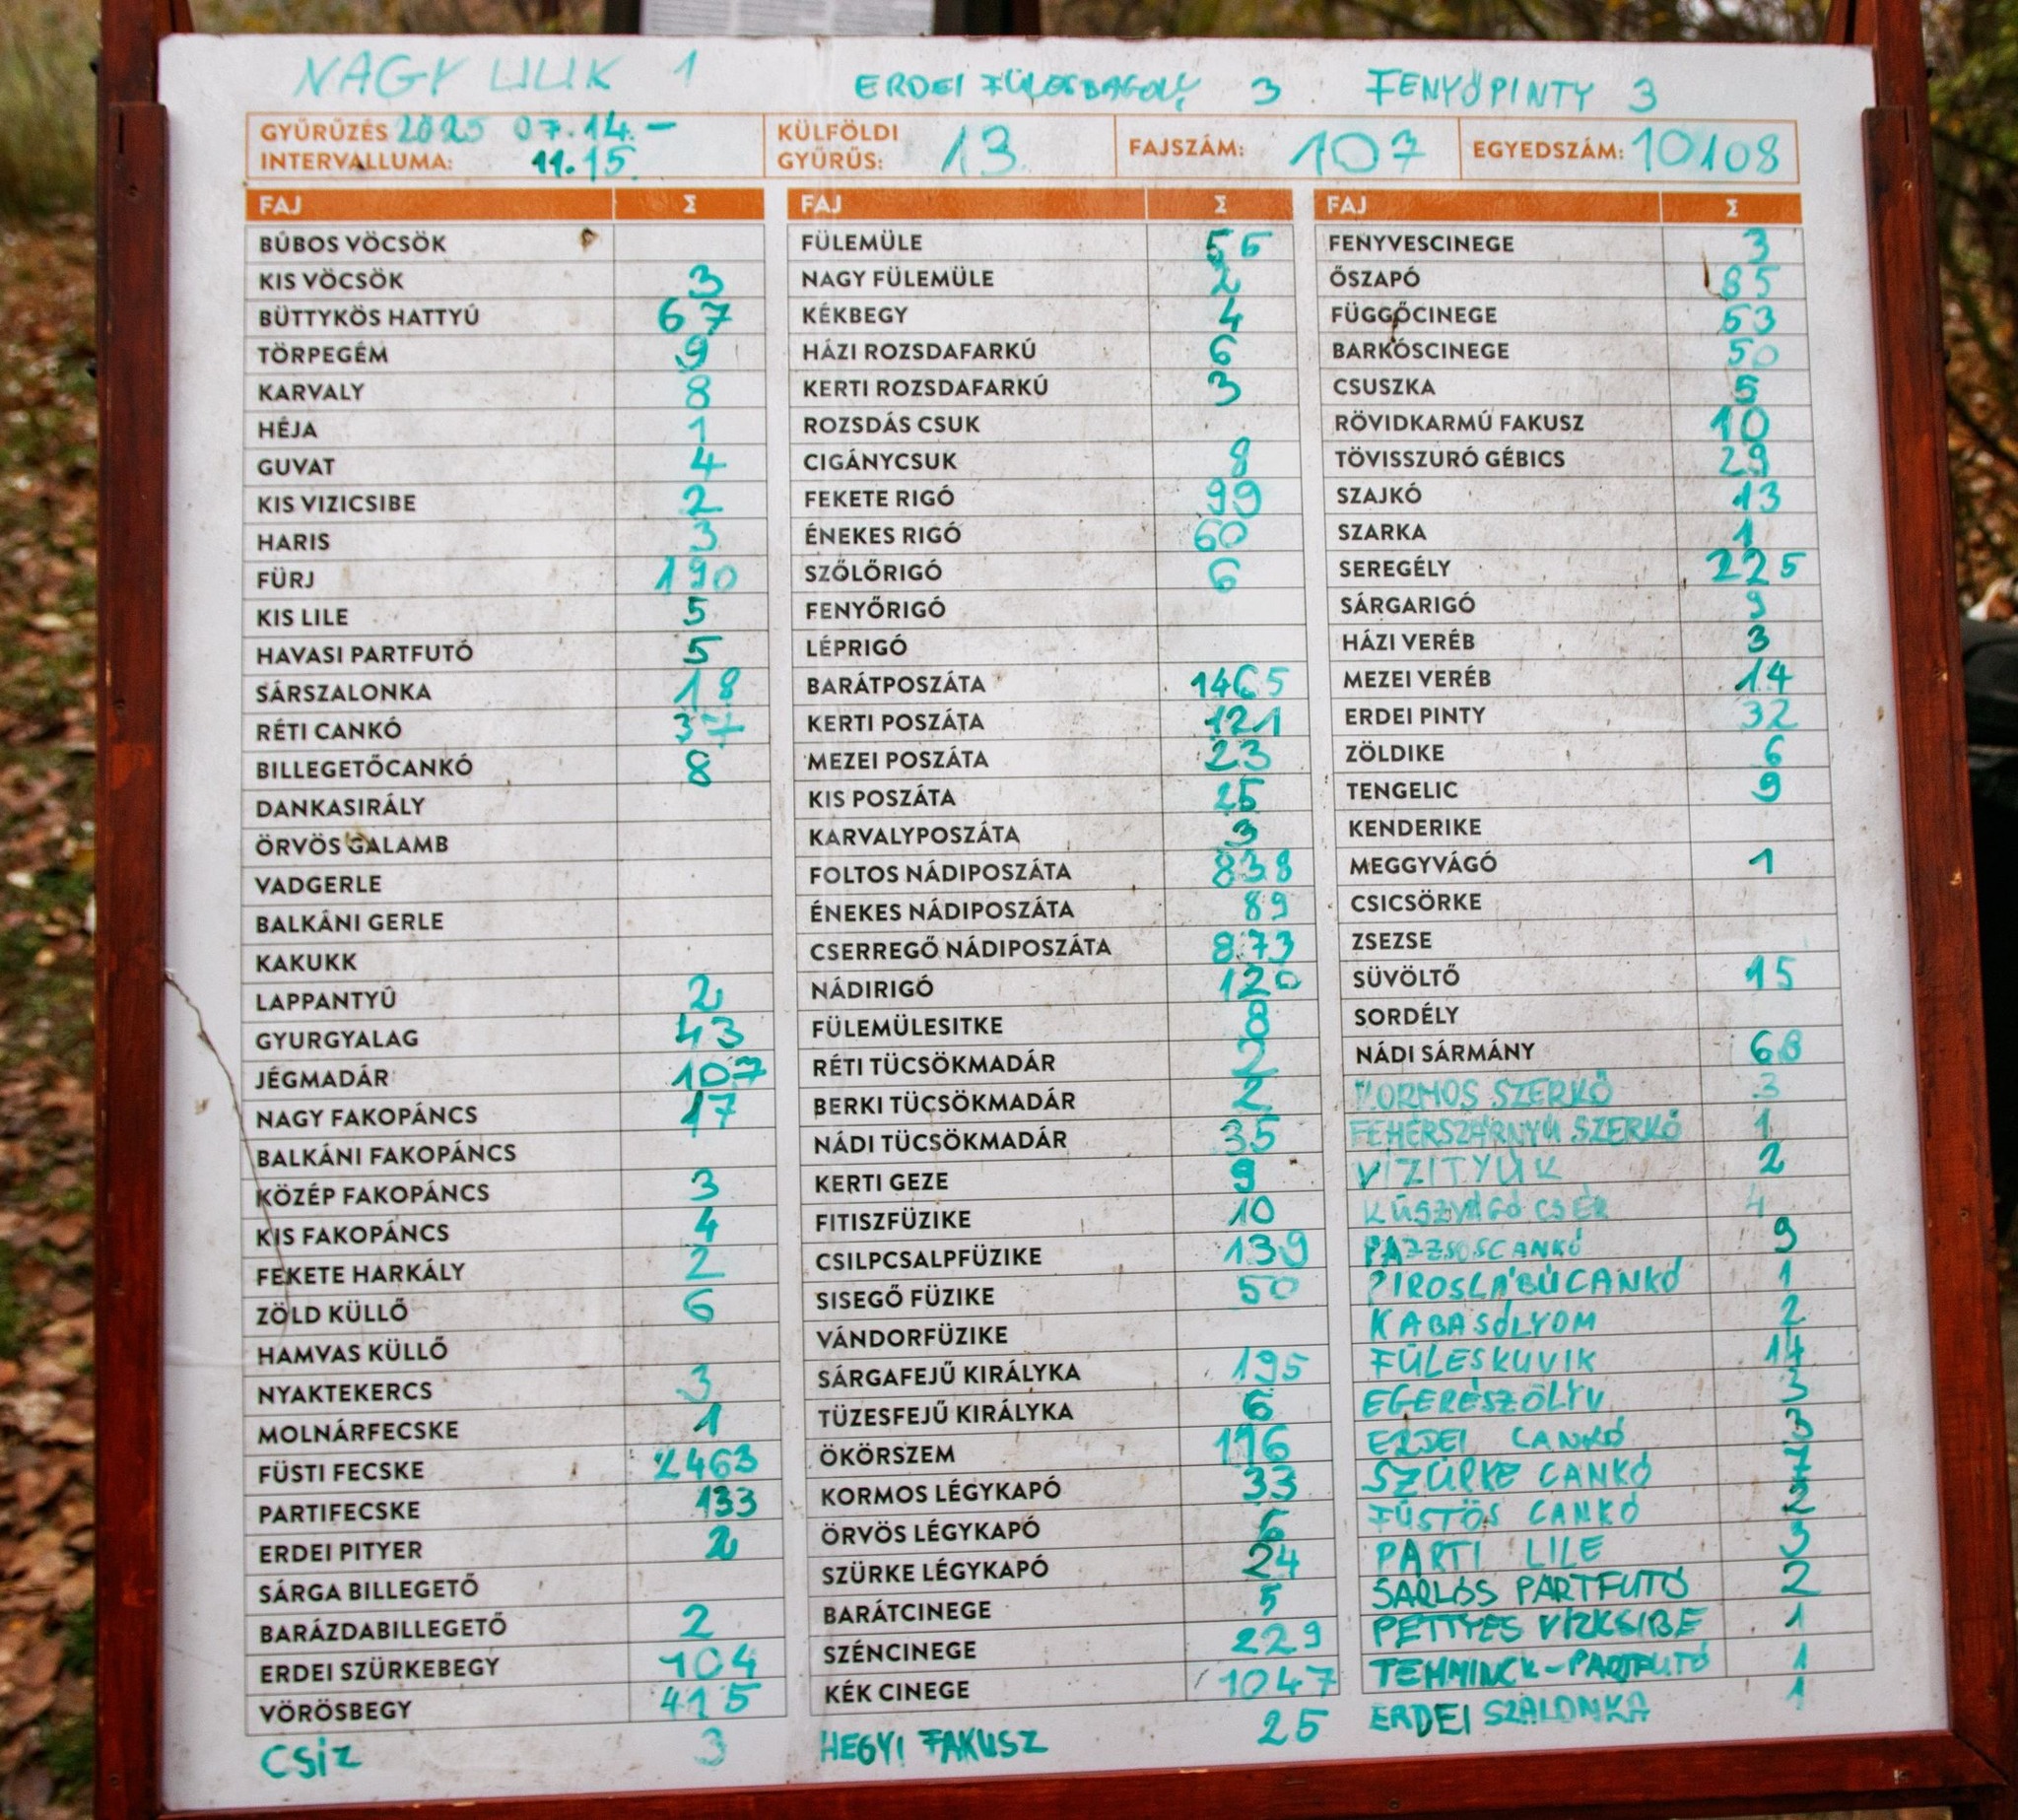 NAGY LILIK 1
ERDEI FÜLESBAGOLY 3
FENYŐPINTY 3
GYŰRŰZÉS INTERVALLUMA: 2025 07.14. - 11.15.
KÜLFÖLDI GYŰRŰS: 13
FAJSZÁM: 107
EGYEDSZÁM: 10108
FAJ Σ
BÚBOS VÖCSÖK
KIS VÖCSÖK 3
BÜTTYKÖS HATTYÚ 67
TÖRPEGÉM 9
KARVALY 8
HÉJA 1
GUVAT 4
KIS VIZICSIBE 2
HARIS 3
FÜRJ 190
KIS LILE 5
HAVASI PARTFUTÓ 5
SÁRSZALONKA 18
RÉTI CANKÓ 37
BILLEGETŐCANKÓ 8
DANKASIRÁLY
ÖRVÖS GALAMB
VADGERLE
BALKÁNI GERLE
KAKUKK
LAPPANTYÚ 2
GYURGYALAG 43
JÉGMADÁR 107
NAGY FAKOPÁNCS 17
BALKÁNI FAKOPÁNCS
KÖZÉP FAKOPÁNCS 3
KIS FAKOPÁNCS 4
FEKETE HARKÁLY 2
ZÖLD KÜLLŐ 6
HAMVAS KÜLLŐ
NYAKTEKERCS 3
MOLNÁRFECSKE 1
FÜSTI FECSKE 2463
PARTIFECSKE 133
ERDEI PITYER 2
SÁRGA BILLEGETŐ
BARÁZDABILLEGETŐ 2
ERDEI SZÜRKEBEGY 104
VÖRÖSBEGY 415
CSÍZ 3
FAJ Σ
FÜLEMÜLE
NAGY FÜLEMÜLE 2
KÉKBEGY 4
HÁZI ROZSDAFARKÚ 6
KERTI ROZSDAFARKÚ 3
ROZSDÁS CSUK
CIGÁNYCSUK 8
FEKETE RIGÓ 99
ÉNEKES RIGÓ 60
SZŐLŐRIGÓ 6
FENYŐRIGÓ
LÉPRIGÓ
BARÁTPOSZÁTA 1465
KERTI POSZÁTA 121
MEZEI POSZÁTA 23
KIS POSZÁTA 25
KARVALYPOSZÁTA 3
FOLTOS NÁDIPOSZÁTA 838
ÉNEKES NÁDIPOSZÁTA 89
CSERREGŐ NÁDIPOSZÁTA 873
NÁDIRIGÓ 120
FÜLEMÜLESITKE 8
RÉTI TÜCSÖKMADÁR 2
BERKI TÜCSÖKMADÁR 2
NÁDI TÜCSÖKMADÁR 35
KERTI GEZE 9
FITISZFÜZIKE 10
CSILPCSALPFÜZIKE 139
SISEGŐ FÜZIKE 50
VÁNDORFÜZIKE
SÁRGAFEJŰ KIRÁLYKA 195
TÜZESFEJŰ KIRÁLYKA 6
ÖKÖRSZEM
KORMOS LÉGYKAPÓ 33
ÖRVÖS LÉGYKAPÓ
SZÜRKE LÉGYKAPÓ 24
BARÁTCINEGE 5
SZÉNCINEGE 229
KÉK CINEGE 1047
HEGYI FAKUSZ 25
FAJ Σ
FENYVESCINEGE 3
ŐSZAPÓ 85
FÜGGŐCINEGE 53
BARKÓSCINEGE 50
CSUSZKA 5
RÖVIDKARMÚ FAKUSZ 10
TÖVISSZURÓ GÉBICS 29
SZAJKÓ 13
SZARKA 1
SEREGÉLY 225
SÁRGARIGÓ 9
HÁZI VERÉB 3
MEZEI VERÉB 14
ERDEI PINTY 32
ZÖLDIKE 6
TENGELIC 9
KENDERIKE
MEGGYVÁGÓ 1
CSICSÖRKE
ZSEZSE
SÜVÖLTŐ 15
SORDÉLY
NÁDI SÁRMÁNY 68
KORMOS SZERKŐ 3
FEHÉRSZÁRNYÚ SZERKŐ 1
VÍZITYÚK 2
KÜSZVÁGÓ CSÉR 4
PAJZSOSCANKÓ 9
PIROSLÁBÚCANKÓ 1
KABASÓLYOM 2
FÜLESKUVIK 14
EGERÉSZÖLYV 3
ERDEI CANKÓ 3
SZÜRKE CANKÓ 7
FÜSTÖS CANKÓ 2
PARTI LILE 3
SARLÓS PARTFUTÓ 2
PETTYES VÍZICSIBE 1
TEMMINCK-PARTFUTÓ 1
ERDEI SZALONKA 1